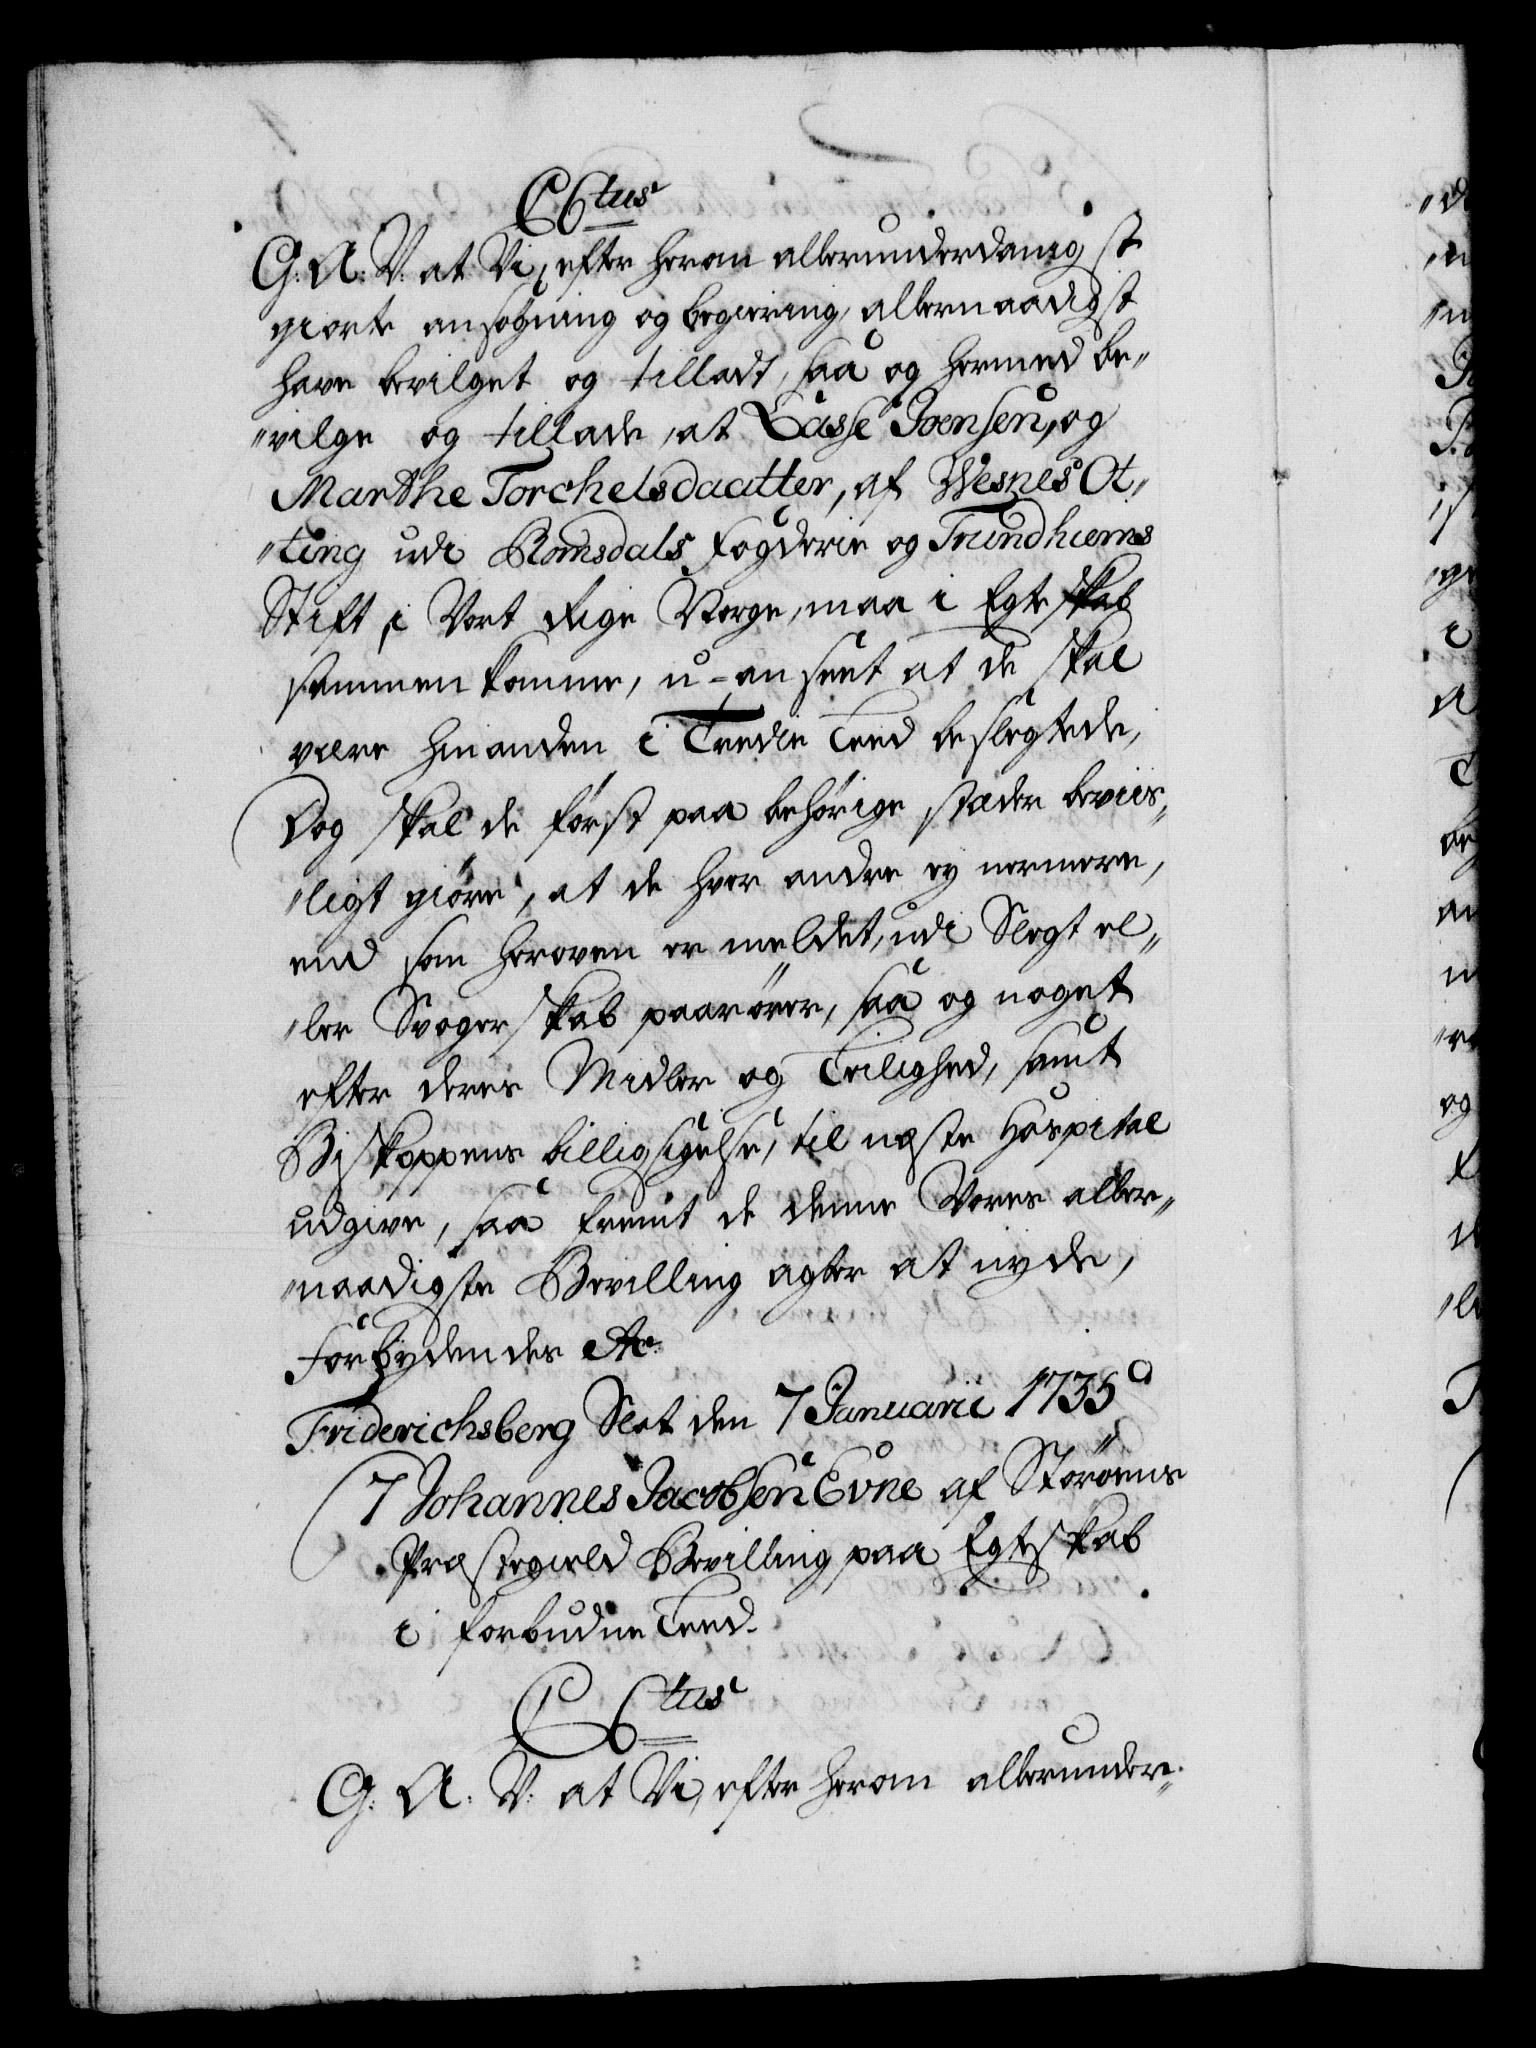 C6tus
G: A: V: at Vi, efter herom allerunderdanigst
giorte ansøgning og begiering, allernaadigst
have bevilget og tilladt, saa og hermed be„
„vilge og tillade, at Lasse Joensen, og
Marthe Torchelsdaatter, af Wesnes Ot„
„ting udi Romsdals Fogderie og Trundhiems
Stift, i Vort Rige Norge, maa i Egteskab
sammenkomme, u-anseet at de skal
være hinanden i Tredie Leed beslegtede,
Dog skal de først paa behørige stæder beviis„
„ligt giøre, at de hver andre ey nermere,
end som heroven er meldet, udi Slegt el„
„ler Svogerskab paarører, saa og noget
efter deres Midler og Leilighed, samt
Biskoppens billigsigelse, til næste Hospital
udgive, saa fremt de denne Vores aller„
„naadigste Bevilling agter at nyde,
Forbydendes etc.
Friderichsberg Slot den 7 Januarii 1735
7 Johannes Jacobsen Evne af Størøens
Præstegield Bevilling paa Egteskab
i forbudne Leed.
C6tus
G: A: V: at Vi, efter herom allerunder„